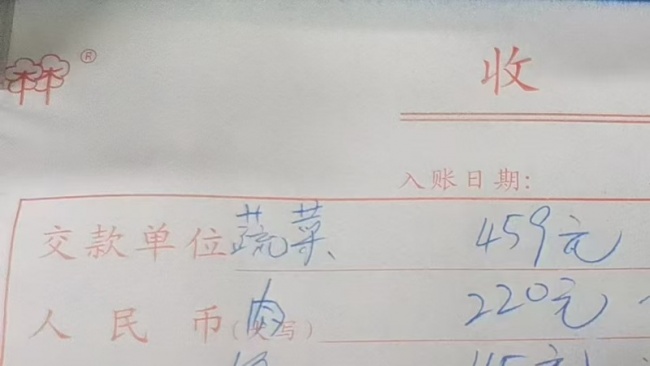 ®
收
入账日期:
交款单位 蔬菜、 459元
人民币(大写) 肉 220元
45元